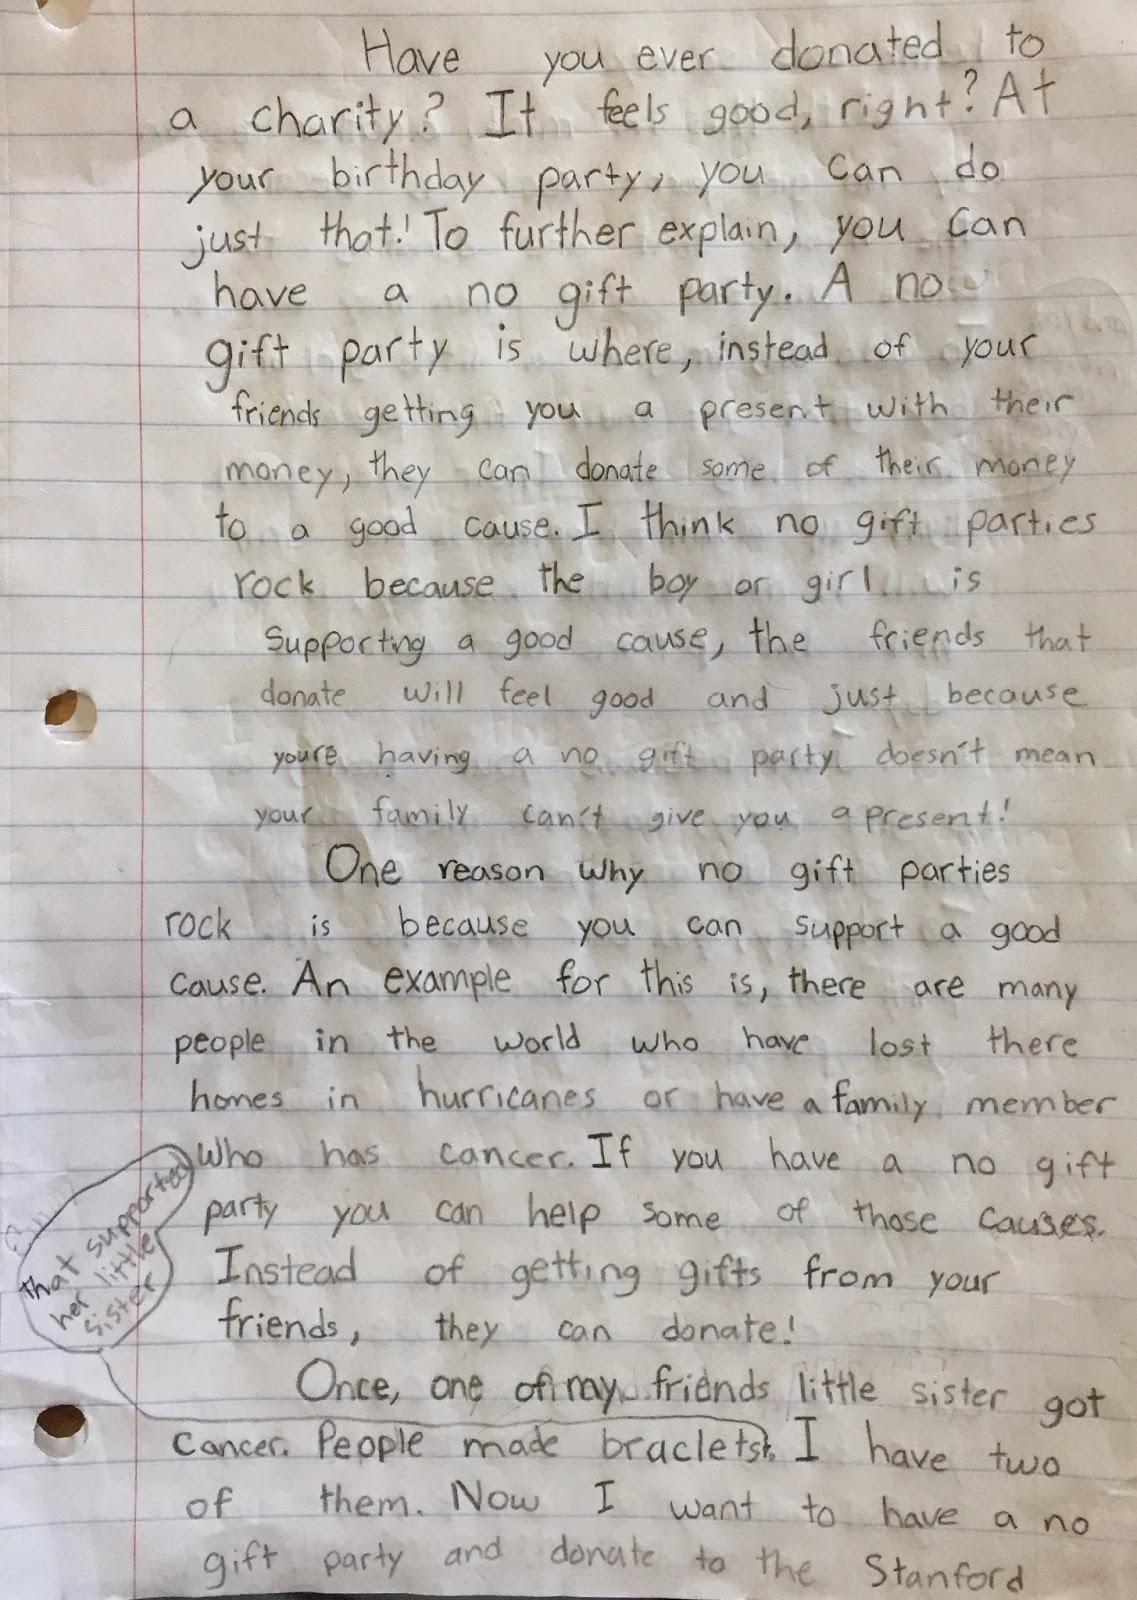 Have you ever donated to
a charity? It feels good, right? At
your birthday party, you can do
just that! To further explain, you can
have a no gift party. A no
gift party is where, instead of your
friends getting you a present with their
money, they can donate some of their money
to a good cause. I think no gift parties
rock because the boy or girl is
supporting a good cause, the friends that
donate will feel good and just because
youre having a no gift party doesn't mean
your family can't give you a present!
One reason why no gift parties
rock is because you can support a good
cause. An example for this is, there are many
people in the world who have lost there
homes in hurricanes or have a family member
who has cancer. If you have a no gift
party you can help some of those causes.
Instead of getting gifts from your
friends, they can donate!
Once, one of my friends little sister got
cancer. People made braclets. I have two
that supported
her little
sister
of them. Now I want to have a no
gift party and donate to the Stanford